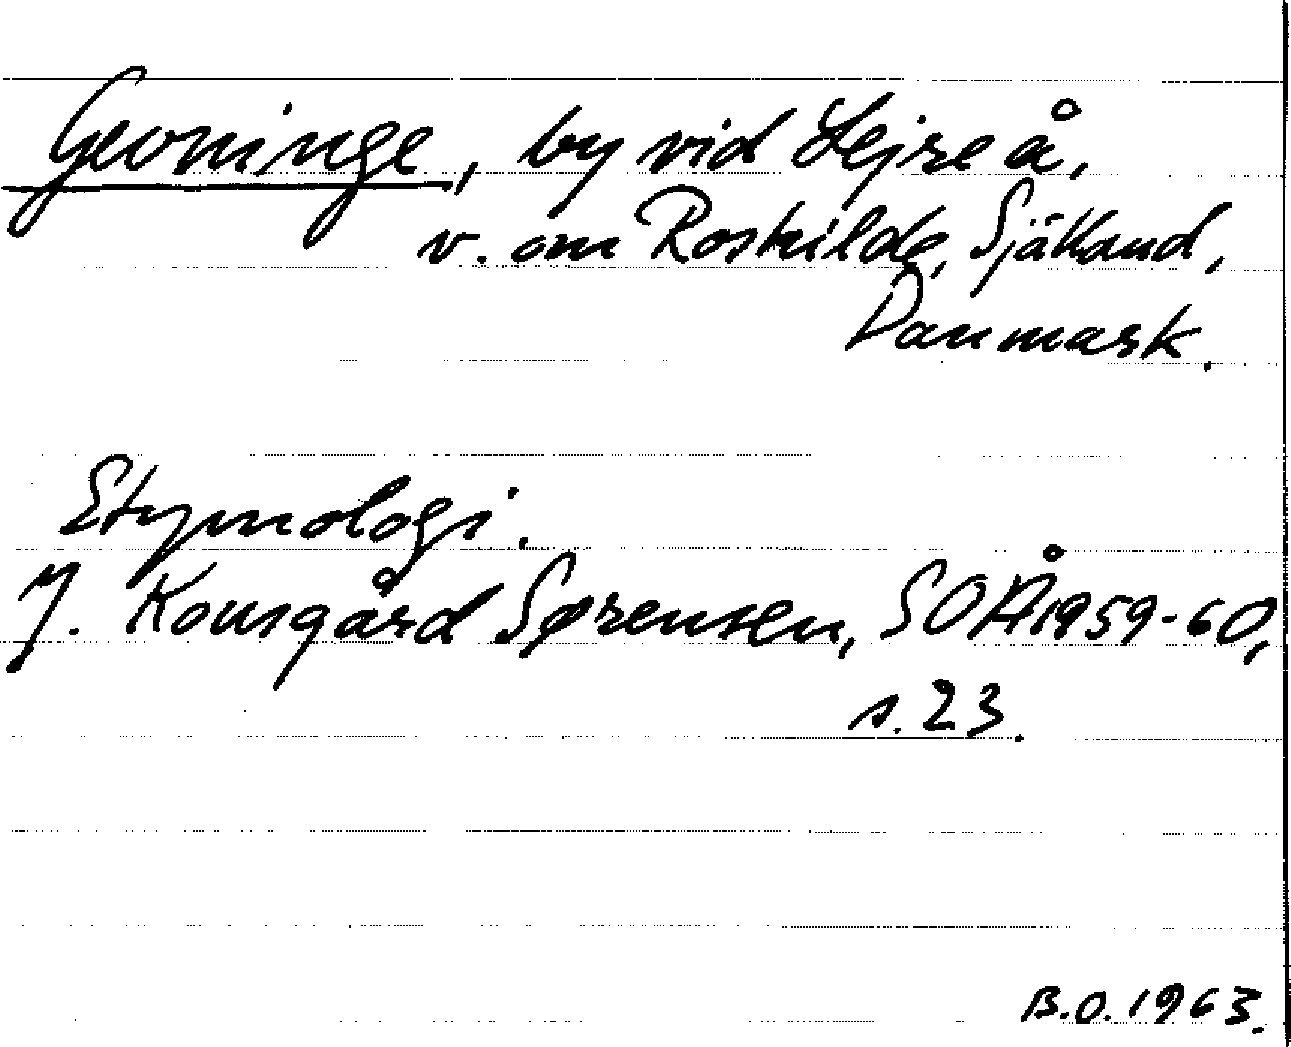 Gevninge, by vid Lejre å,
v. om Roskilde, Själland,
Danmark.
Etymologi.
J. Kousgård Sørensen, SOÅ 1959-60,
s. 23.
B.O. 1963.